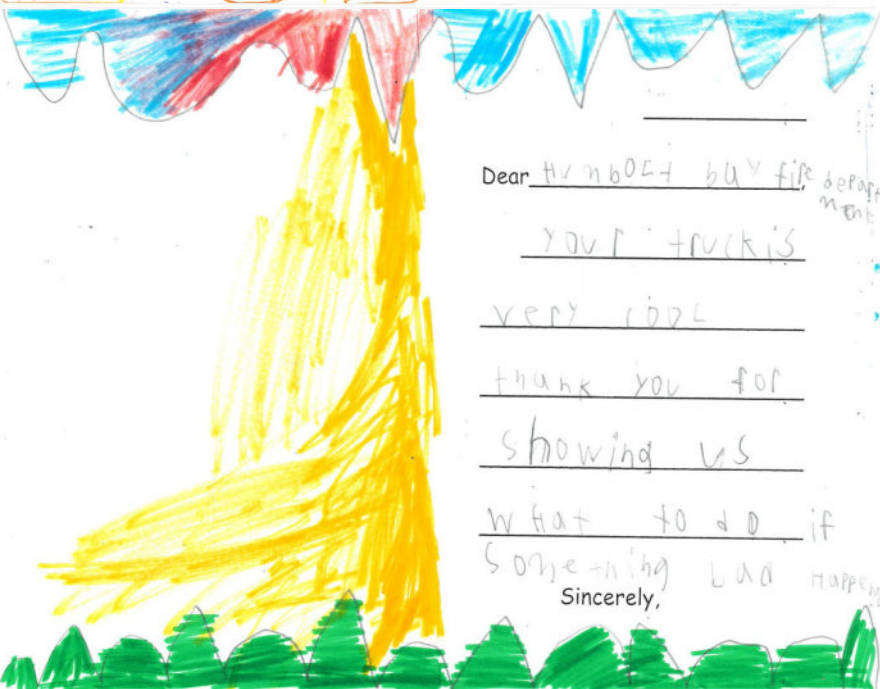 Dear Humbolt bay fire department
your truck is
very cool
thank you for
showing us
what to do if
something bad happens
Sincerely,